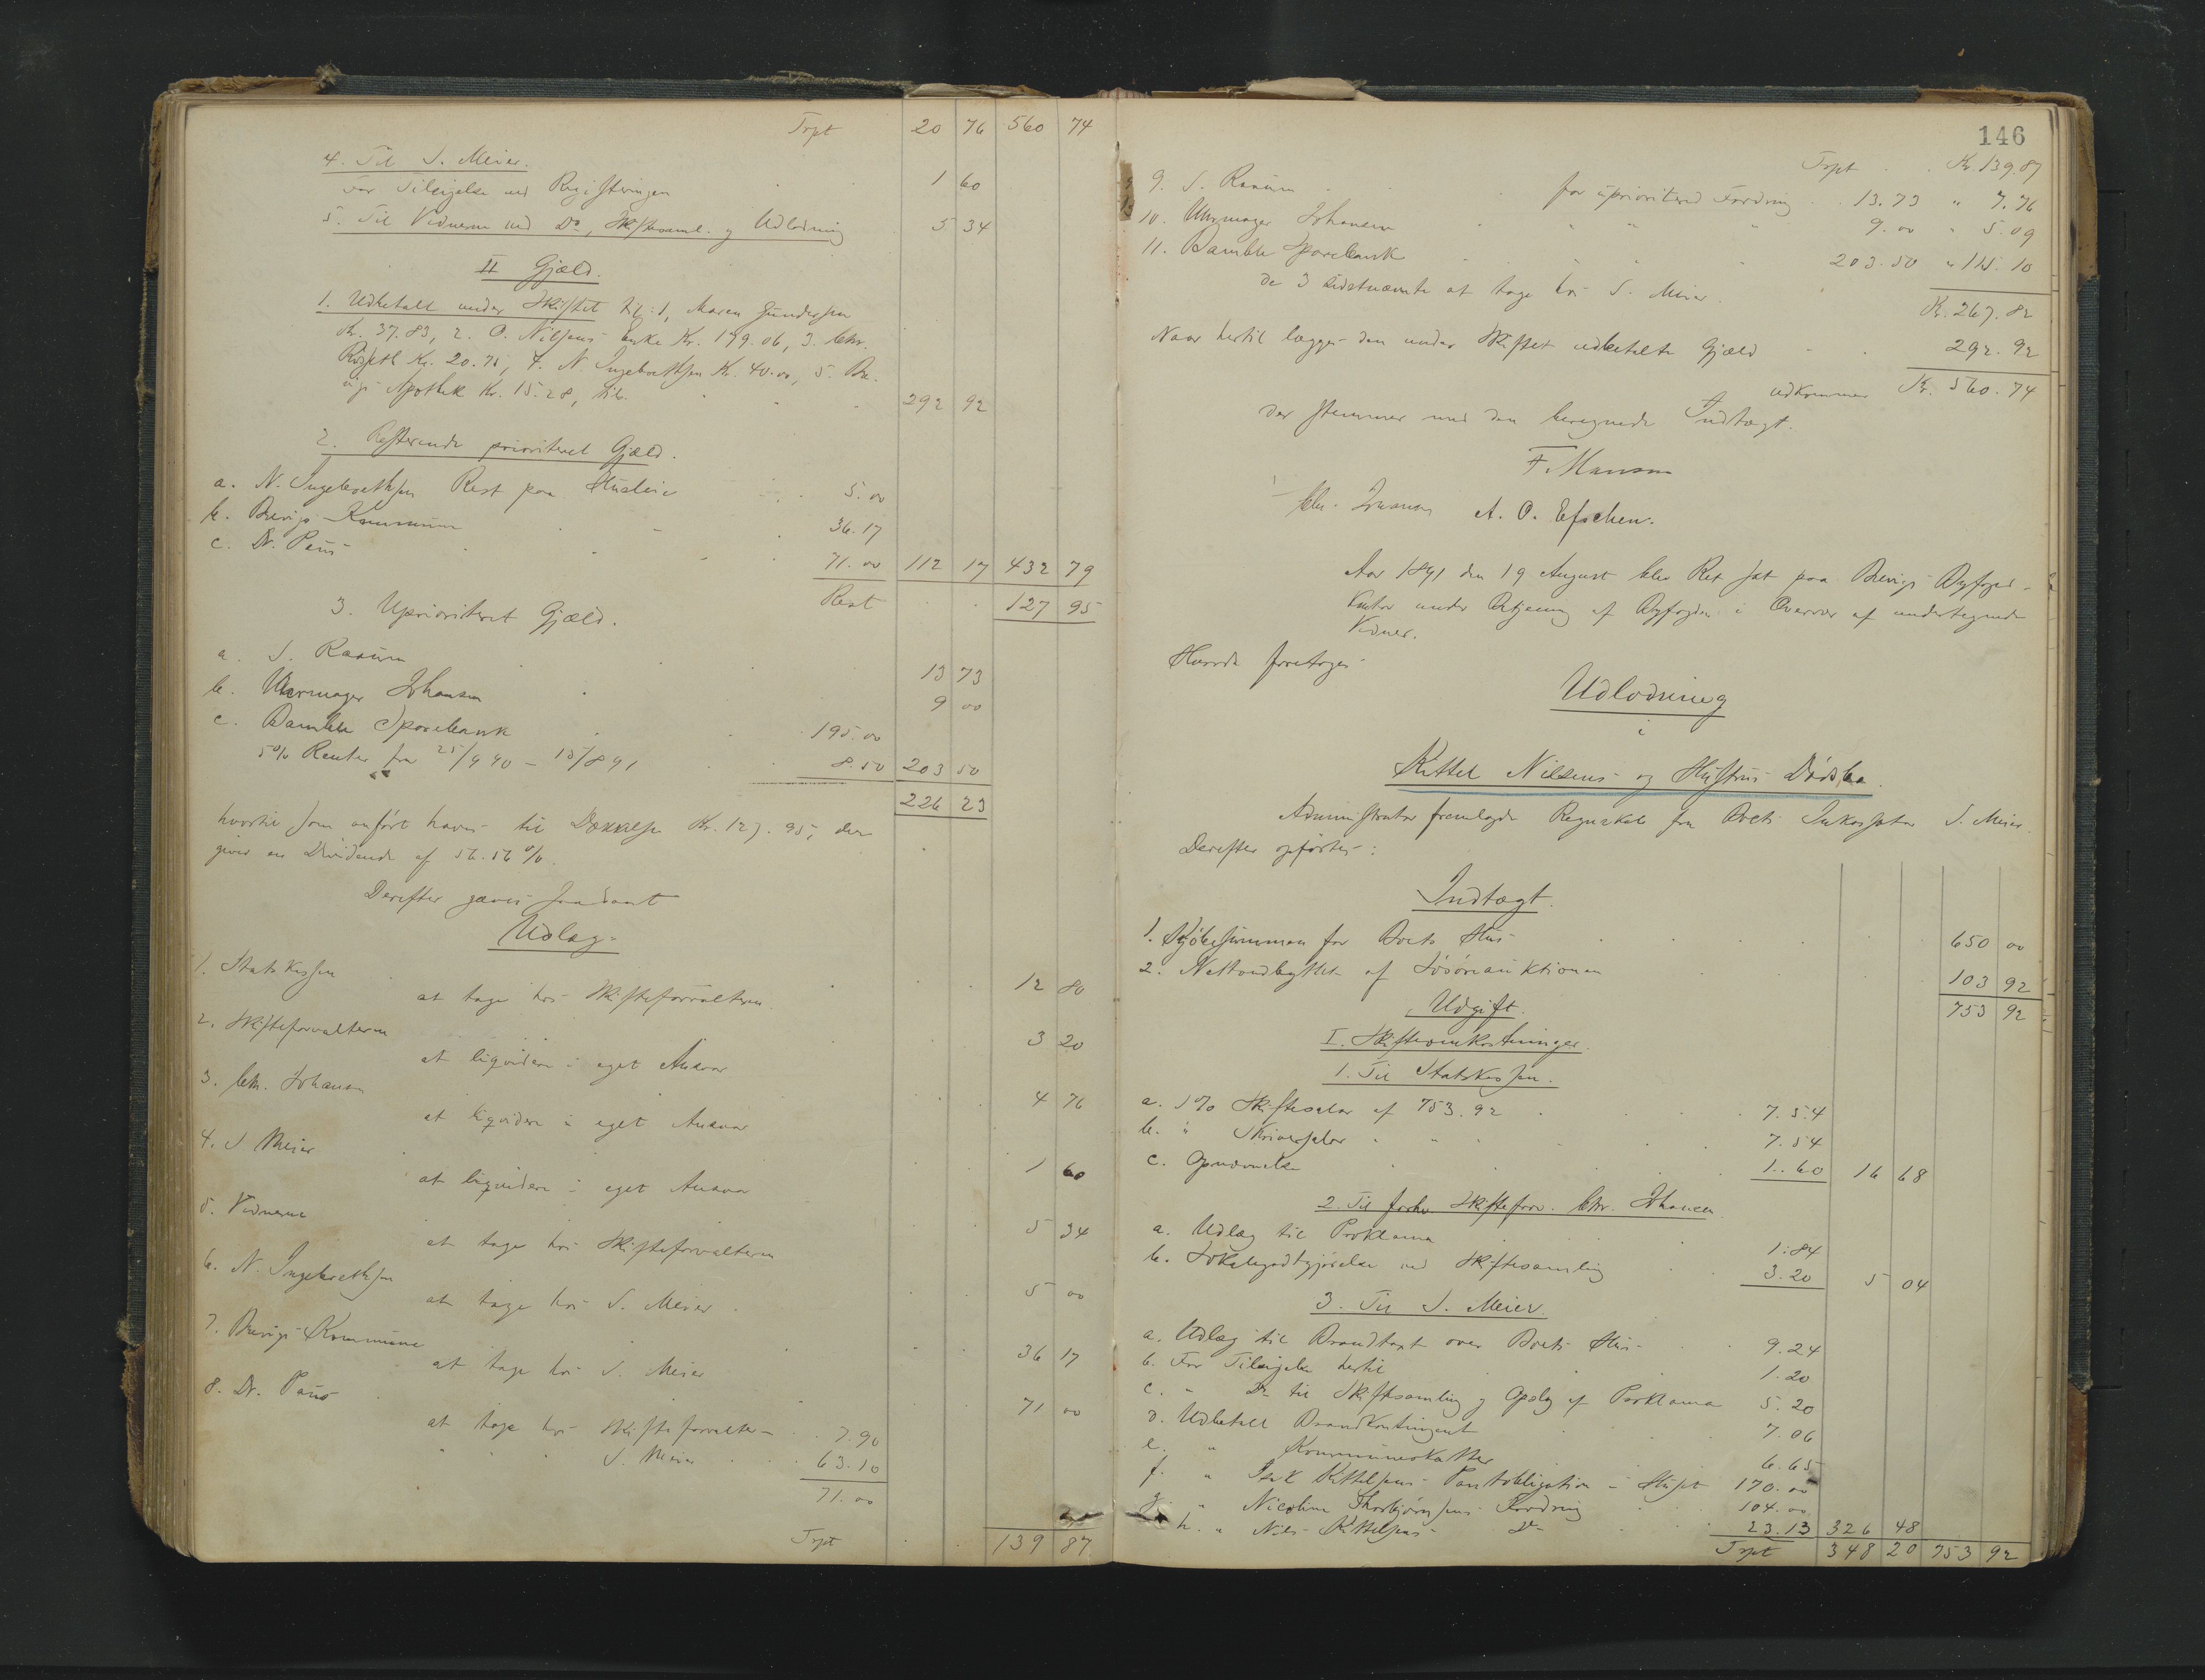 Trpt 20 76 560 74
4. Til S. Meier.
For Tilsigelse ved Registringen 1 60
5. Til Vidnerne ved Do, Skiftesaml. og Udlodning 5 34
II Gjæld.
1. Udbetalt under Skiftet til: 1, Maren Gundersen
Kr. 37.83, 2. O. Nilsens Enke Kr. 179.06, 3. Chr.
Kr. 20.75, 4. N. Ingebrethsen Kr. 40.00, 5. Bre-
vigs Apothek Kr. 15.28, tils. 292 92
2. Resterende prioriteret Gjæld.
a. N. Ingebrethsen Rest paa Husleie 5.00
b. Brevigs Kommune 36.17
c. Dr. Paus 71.00 112 17 432 79
Rest 127 95
3. Uprioriteret Gjæld.
a. S. Raaum 13 73
b. Uhrmager Johansen 9 00
c. Bamble Sparebank 195.00
5% Renter fra 25/9 90 – 15/8 91 8.50 203 50
226 23
hvortil som anført haves til Dækkelse Kr. 127.95, der
giver en Dividende af 56.56 %.
Derefter gaves saadant
Udlæg
1. Statskassen 12 80
at tage hos Skifteforvalteren
2. Skifteforvalteren 3 20
at liqvidere i eget Ansvar
3. Chr. Johansen 4 76
at liqvidere i eget Ansvar
4. S Meier 1 60
at liqvidere i eget Ansvar
5. Vidnerne 5 34
at tage hos Skifteforvalteren
6. N. Ingebrethsen 5 00
at tage hos S. Meier
7. Brevigs Kommune 36 17
at tage hos S. Meier
8. Dr. Paus 71 00
at tage hos Skifteforvalter 7.90
" " " S. Meier 63.10
71.00
Trpt 139 87
146
Trpt Kr. 139.87
9. S. Raaum for uprioriteret Fordring 13.73 " 7.76
10. Uhrmager Johansen " " " 9.00 " 5.09
11. Bamble Sparebank " " " 203.50 " 115.10
de 3 sidstnævnte at tage hos S. Meier.
Kr. 267.82
Naar hertil lægges den under Skiftet udbetalte Gjæld 292.92
udkommer Kr. 560.74
der stemmer med den beregnede Indtægt.
Chr. A. O. Eschen.
Aar 1891 den 19 August blev Ret sat paa Brevigs Byfoged-
kontor under Betjening af Byfogden i Overvær af undertegnede
Vidner.
Hvorda foretoges
Udlodning
i
Kittel Nilsens og Hustrus Dødsbo.
Administrator fremlagde Regnskab fra Boets Inkassator S. Meier.
Derefter opførtes:
Indtægt.
1. Kjøbesummen for Boets Hus 650 00
2. Nettoudbyttet af Løsøreauktionen 103 92
753 92
Udgift.
I. Skifteomkostninger.
1. Til Statskassen.
a. 1% Skiftesalær af 753.92 7.54
b. " Skriversalær " " 7.54
c. Opnævnelse 1.60 16 68
2. Til forhv. Skifteforv. Chr. Johansen.
a. Udlæg til Proklama 1.84
b. Lokalegodtgjørelse ved Skiftesamling 3.20 5 04
3. Til S. Meier.
a. Udlæg til Brandtaxt over Boets Hus 9.24
b. For Tilsigelse hertil 1.20
c. " Do til Skiftesamling og Opslag af Proklama 5.20
d. Udbetalt Brandkontingent 7.06
e. " Kommuneskatter 6.65
f. " Isak Kittelsens Pantobligation i Huset 170.00
g. " Nicoline Thorbjørnsens Fordring 104.00
h. " Niels Kittelsens Do 23.13 326 48
Trpt 348 20 753 92